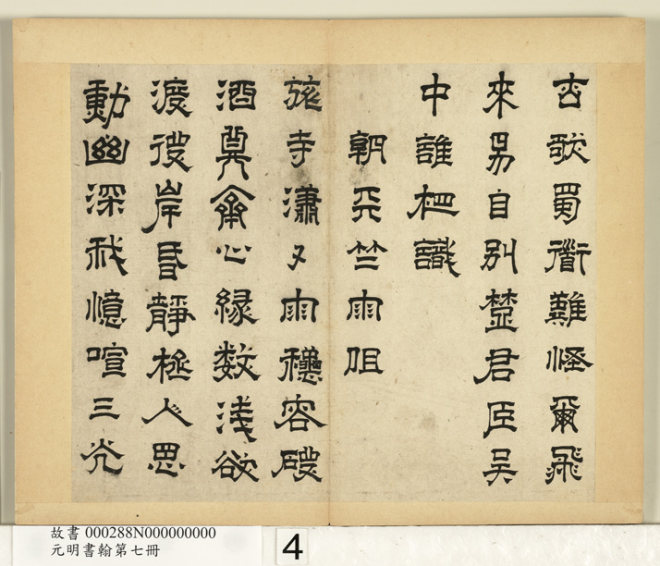 去歌蜀衟難怪爾飛
來易自別楚君臣吳
中誰杷識
朝天竺雨阻
旅寺瀟〻雨穩容
酒齋心緣數淺欲
渡彼岸昏靜極人思
動幽深我憶喧三光
故書 000288N000000000
元明書翰第七冊
4